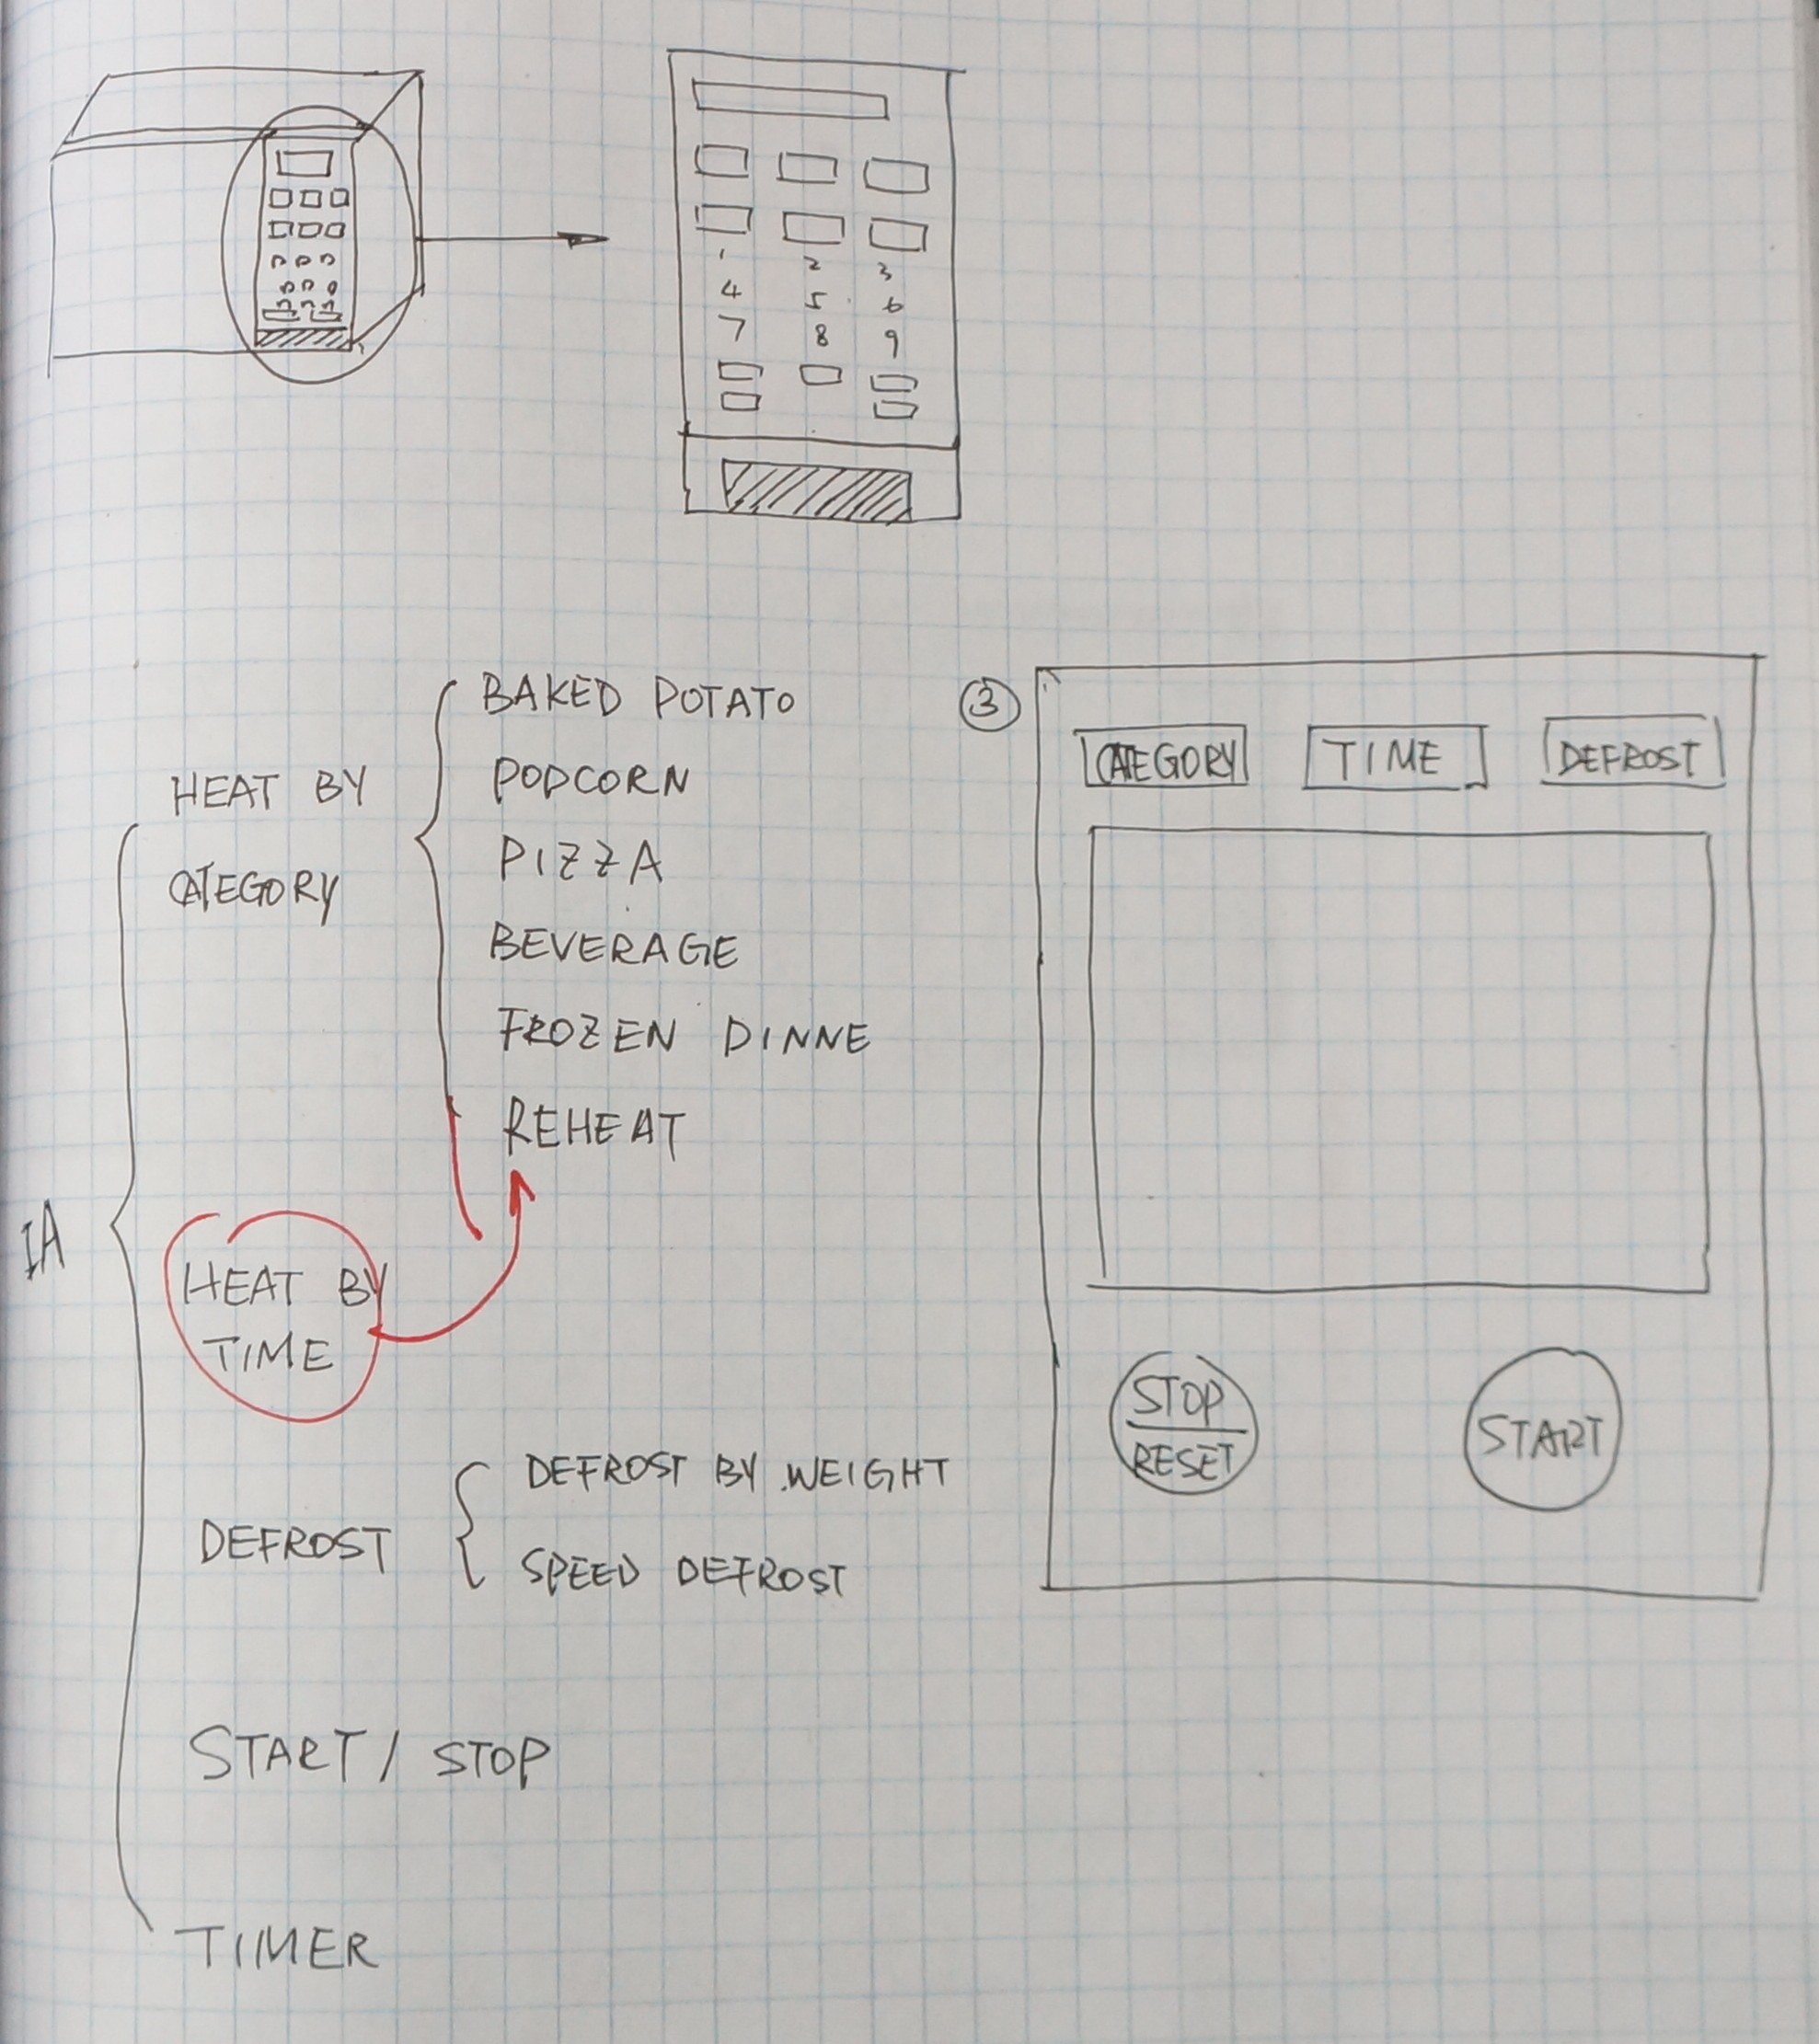 1 2 3
4 5 6
7 8 9
IA
HEAT BY
CATEGORY
BAKED POTATO
PODCORN
PIZZA
BEVERAGE
FROZEN DINNE
REHEAT
HEAT BY
TIME
DEFROST
DEFROST BY WEIGHT
SPEED DEFROST
START / STOP
TIMER
3
CATEGORY TIME DEFROST
STOP
RESET
START